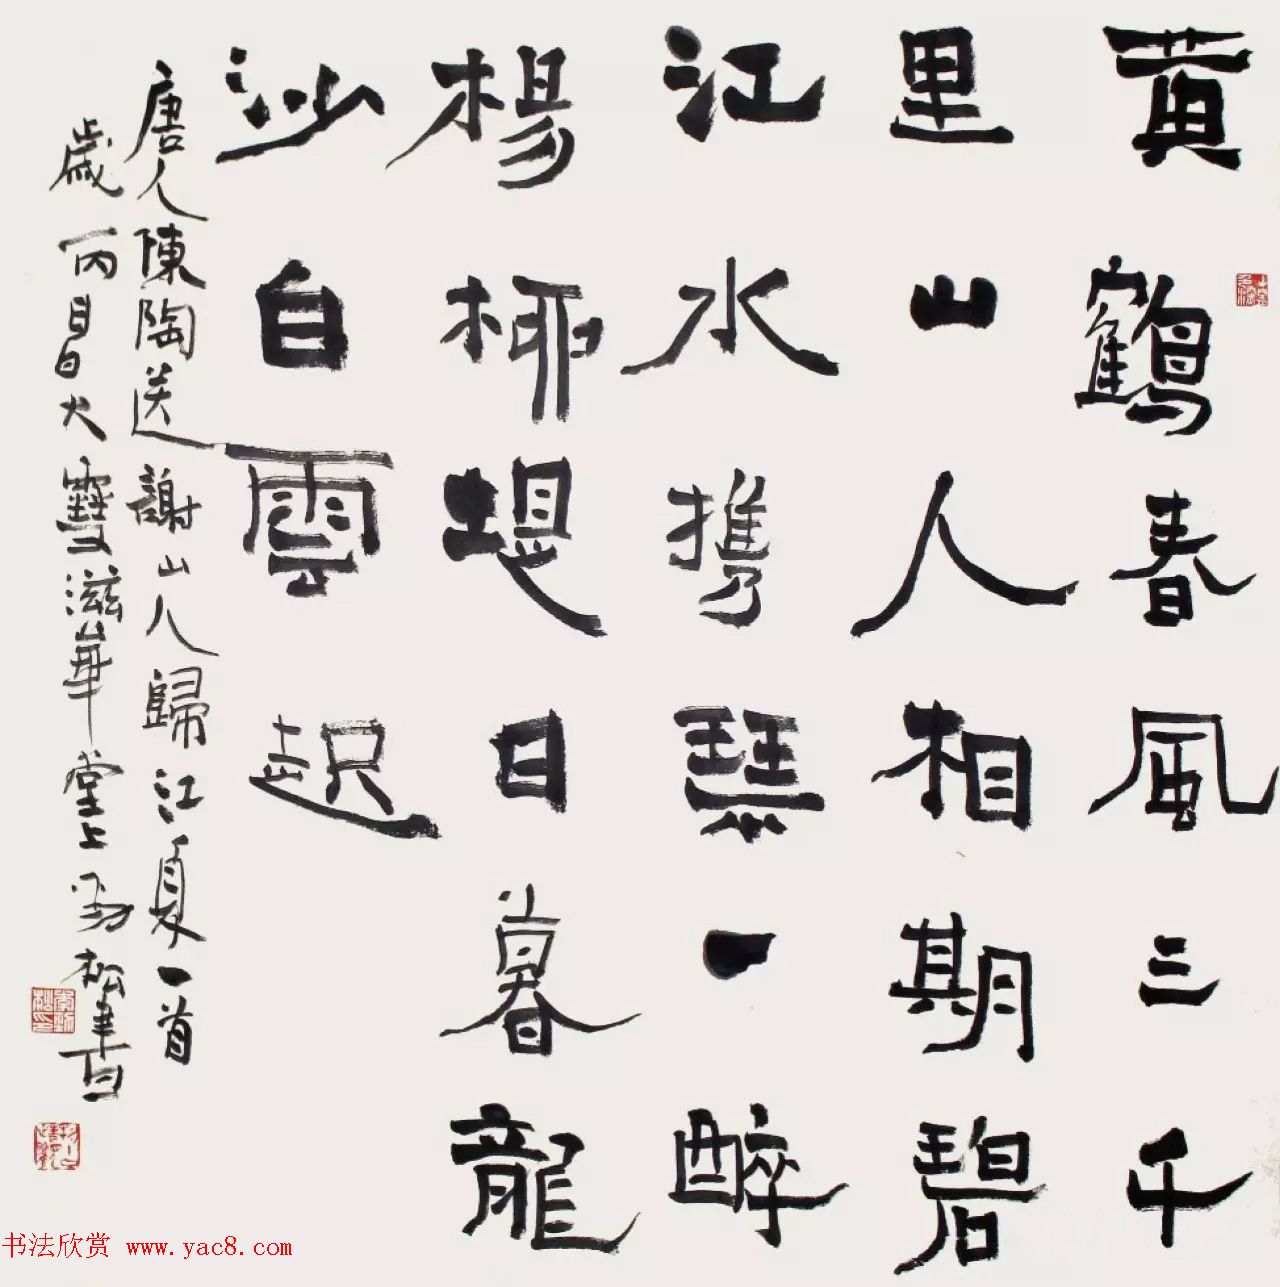 黄鶴春風三千
里山人相期碧
江水携琴一醉
楊柳堤日暮龍
沙白雲起
唐人陳陶送謝山人歸江夏一首
歲丙大雪滋華堂上松書
书法欣赏 www.yac8.com